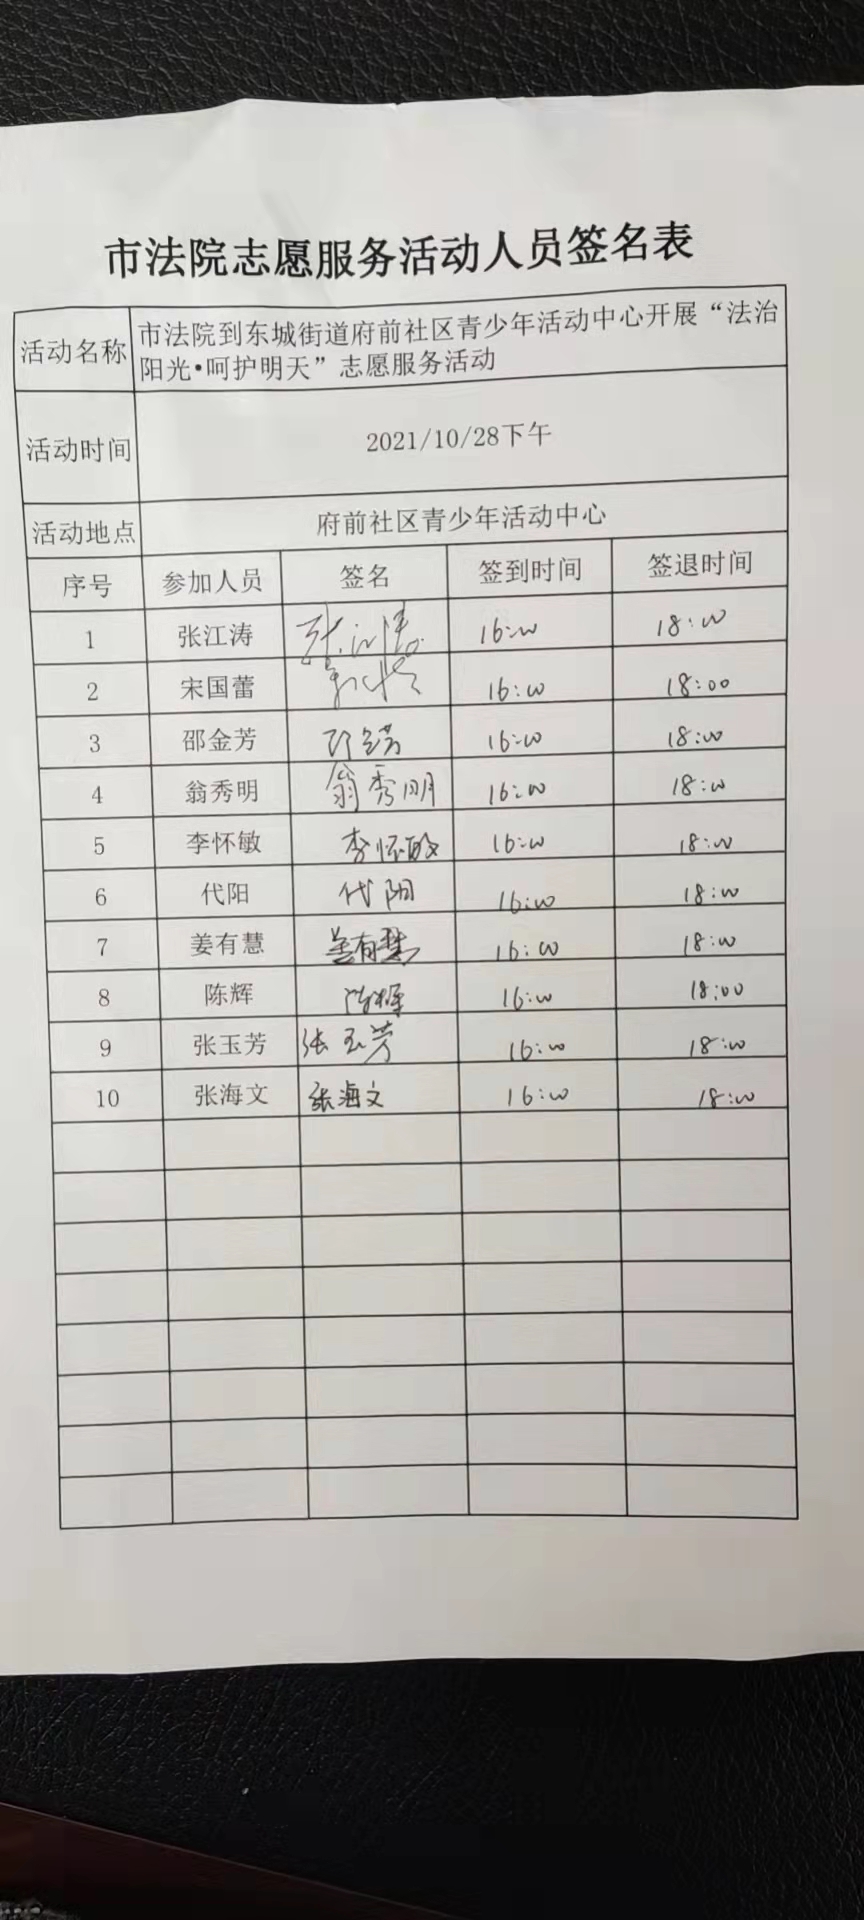 市法院志愿服务活动人员签名表
活动名称 市法院到东城街道府前社区青少年活动中心开展“法治
阳光•呵护明天”志愿服务活动
活动时间 2021/10/28下午
活动地点 府前社区青少年活动中心
序号 参加人员 签名 签到时间 签退时间
1 张江涛 张江涛 16:00 18:00
2 宋国蕾 16:00 18:00
3 邵金芳 16:00 18:00
4 翁秀明 翁秀明 16:00 18:00
5 李怀敏 李怀敏 16:00 18:00
6 代阳 代阳 16:00 18:00
7 姜有慧 姜有慧 16:00 18:00
8 陈辉 陈辉 16:00 18:00
9 张玉芳 张玉芳 16:00 18:00
10 张海文 张海文 16:00 18:00